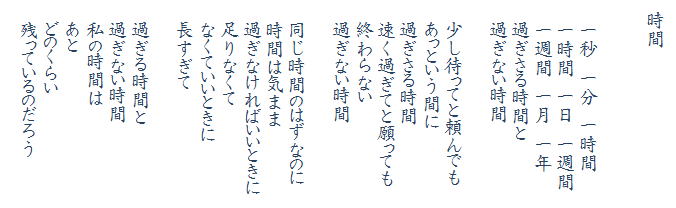 時間
一秒 一分 一時間
一時間 一日 一週間
一週間 一月 一年
過ぎさる時間と
過ぎない時間
少し待ってと頼んでも
あっという間に
過ぎさる時間
速く過ぎてと願っても
終わらない
過ぎない時間
同じ時間のはずなのに
時間は気まま
過ぎなければいいときに
足りなくて
なくていいときに
長すぎて
過ぎる時間と
過ぎない時間
私の時間は
あと
どのくらい
残っているのだろう